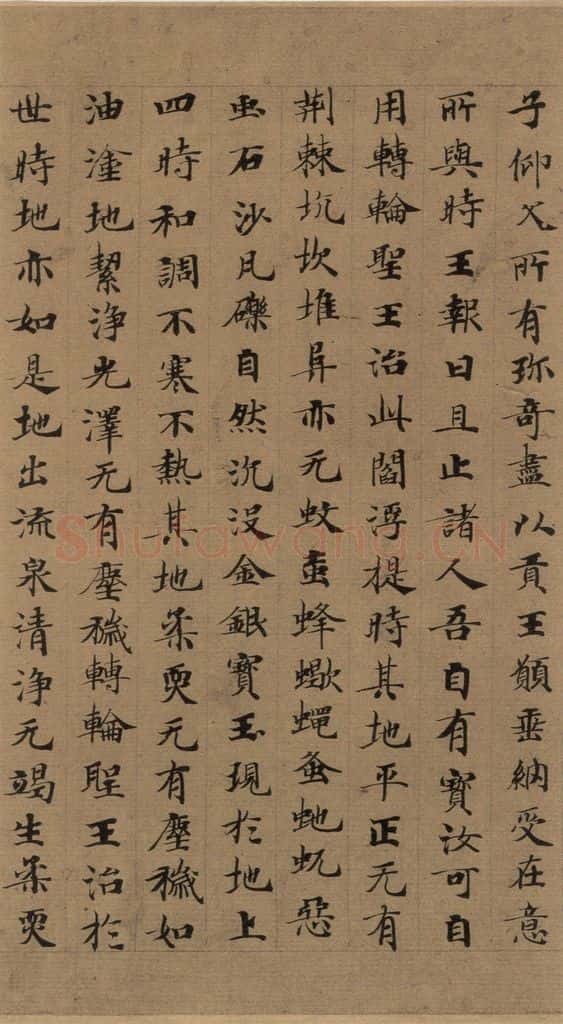 子仰父所有珎奇盡以貢王願垂納受在意
所與時王報曰且止諸人吾自有寶汝可自
用轉輪聖王治此閻浮提時其地平正无有
荊棘坑坎堆阜亦无蚊虻蜂蠍蠅蚤虵蚖惡
虫石沙凡礫自然沉没金銀寶玉現於地上
四時和調不寒不熱其地柔耎无有塵穢如
油塗地絜浄光澤无有塵穢轉輪聖王治於
世時地亦如是地出流泉清浄无竭生柔耎
Shufawang.CN